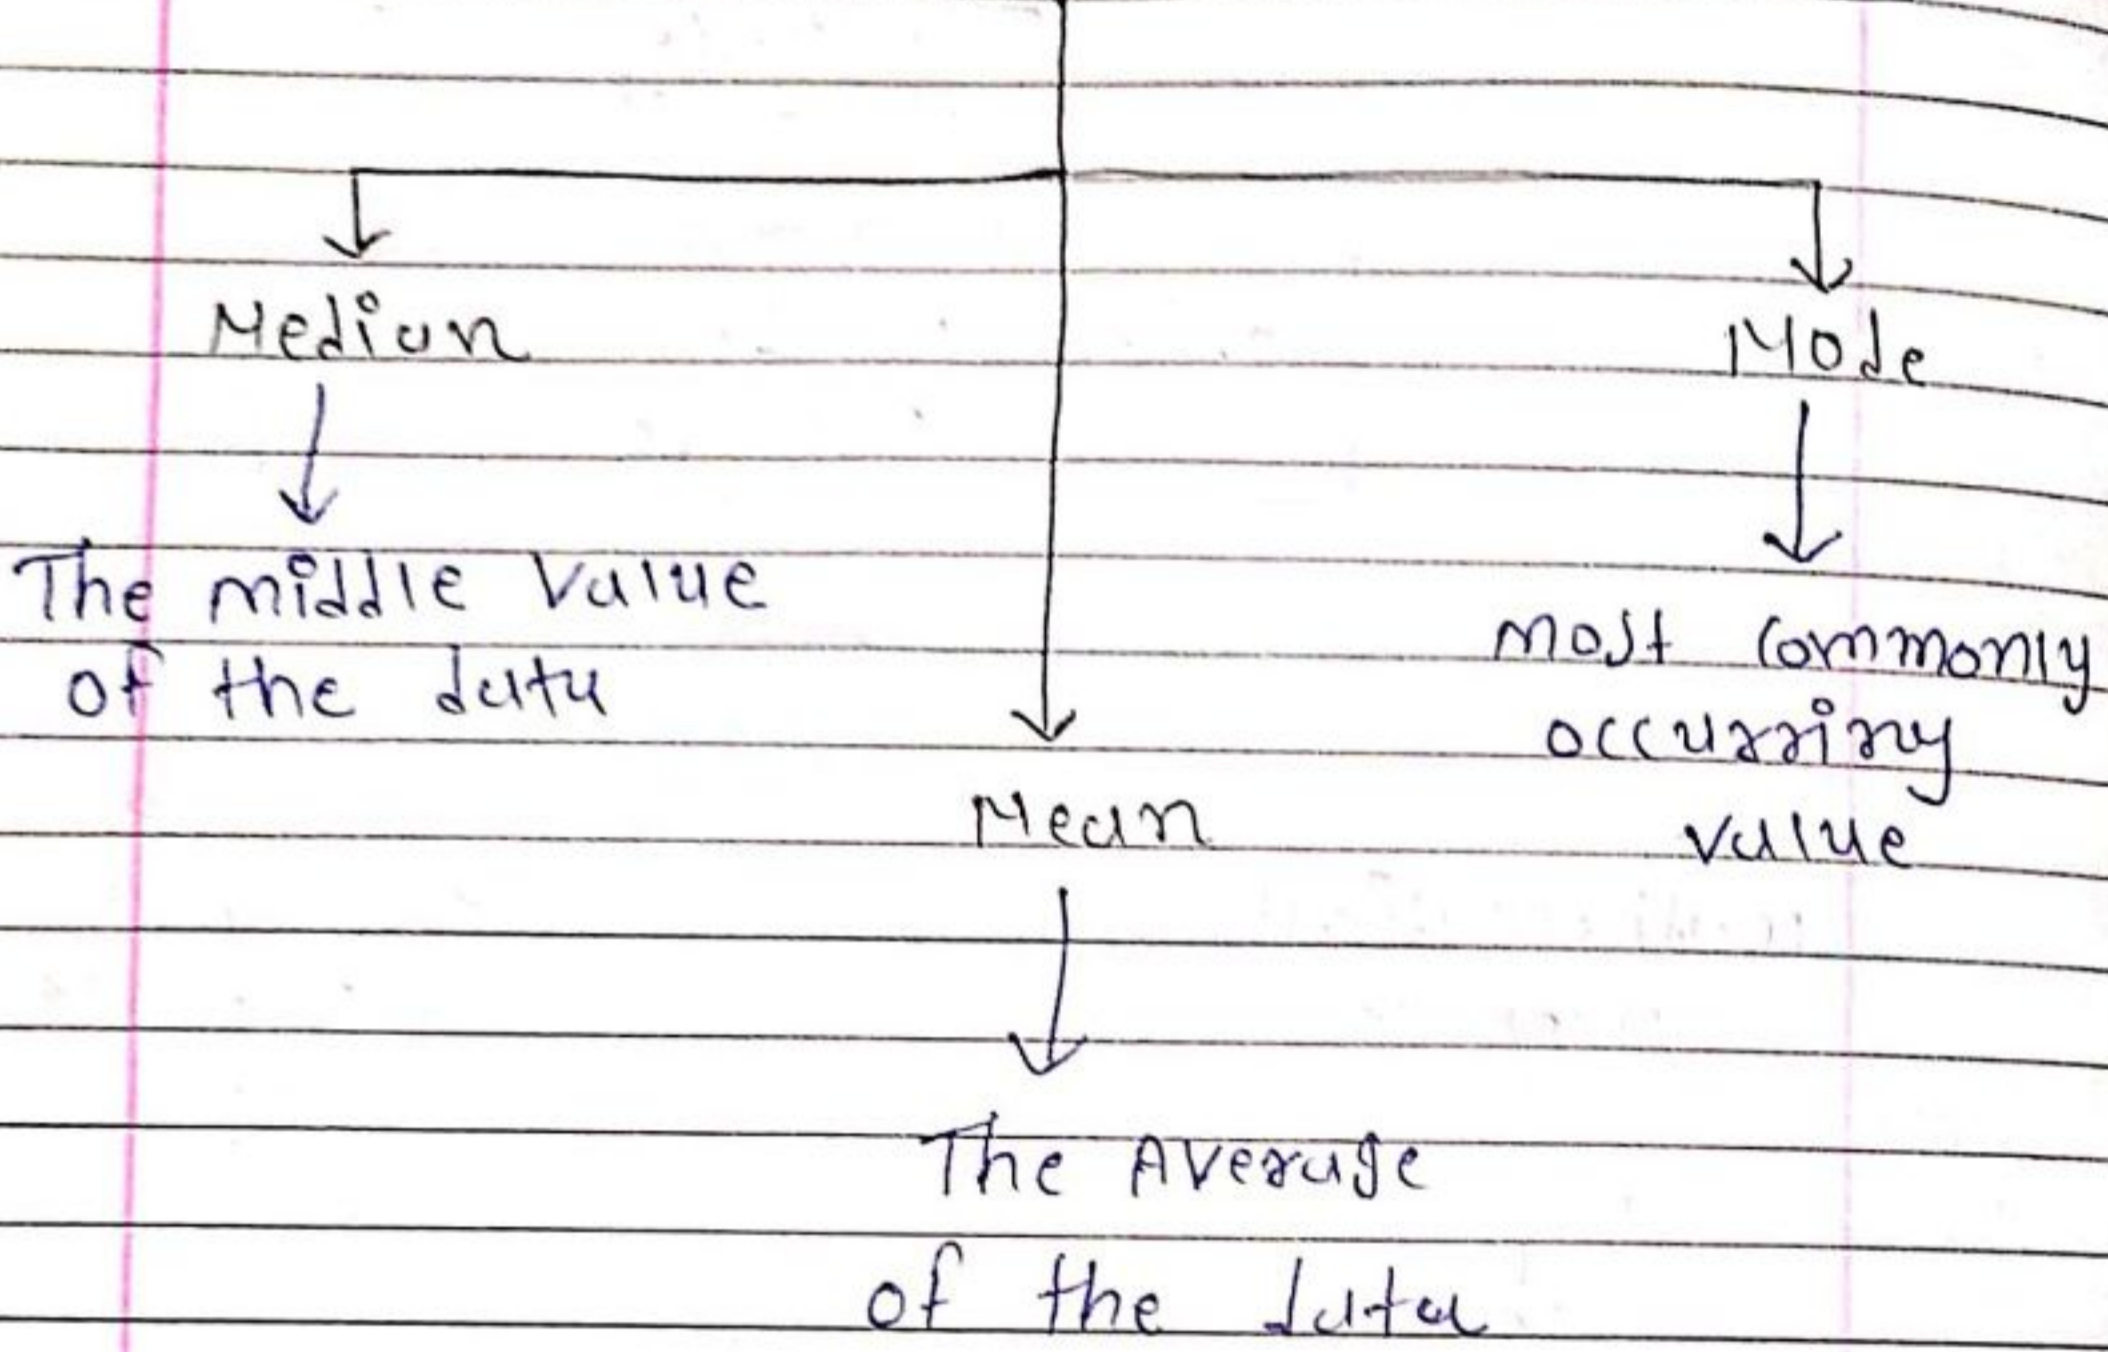 Median
Mode
The middle value
of the data
most commonly
occurring
value
Mean
The Average
of the data